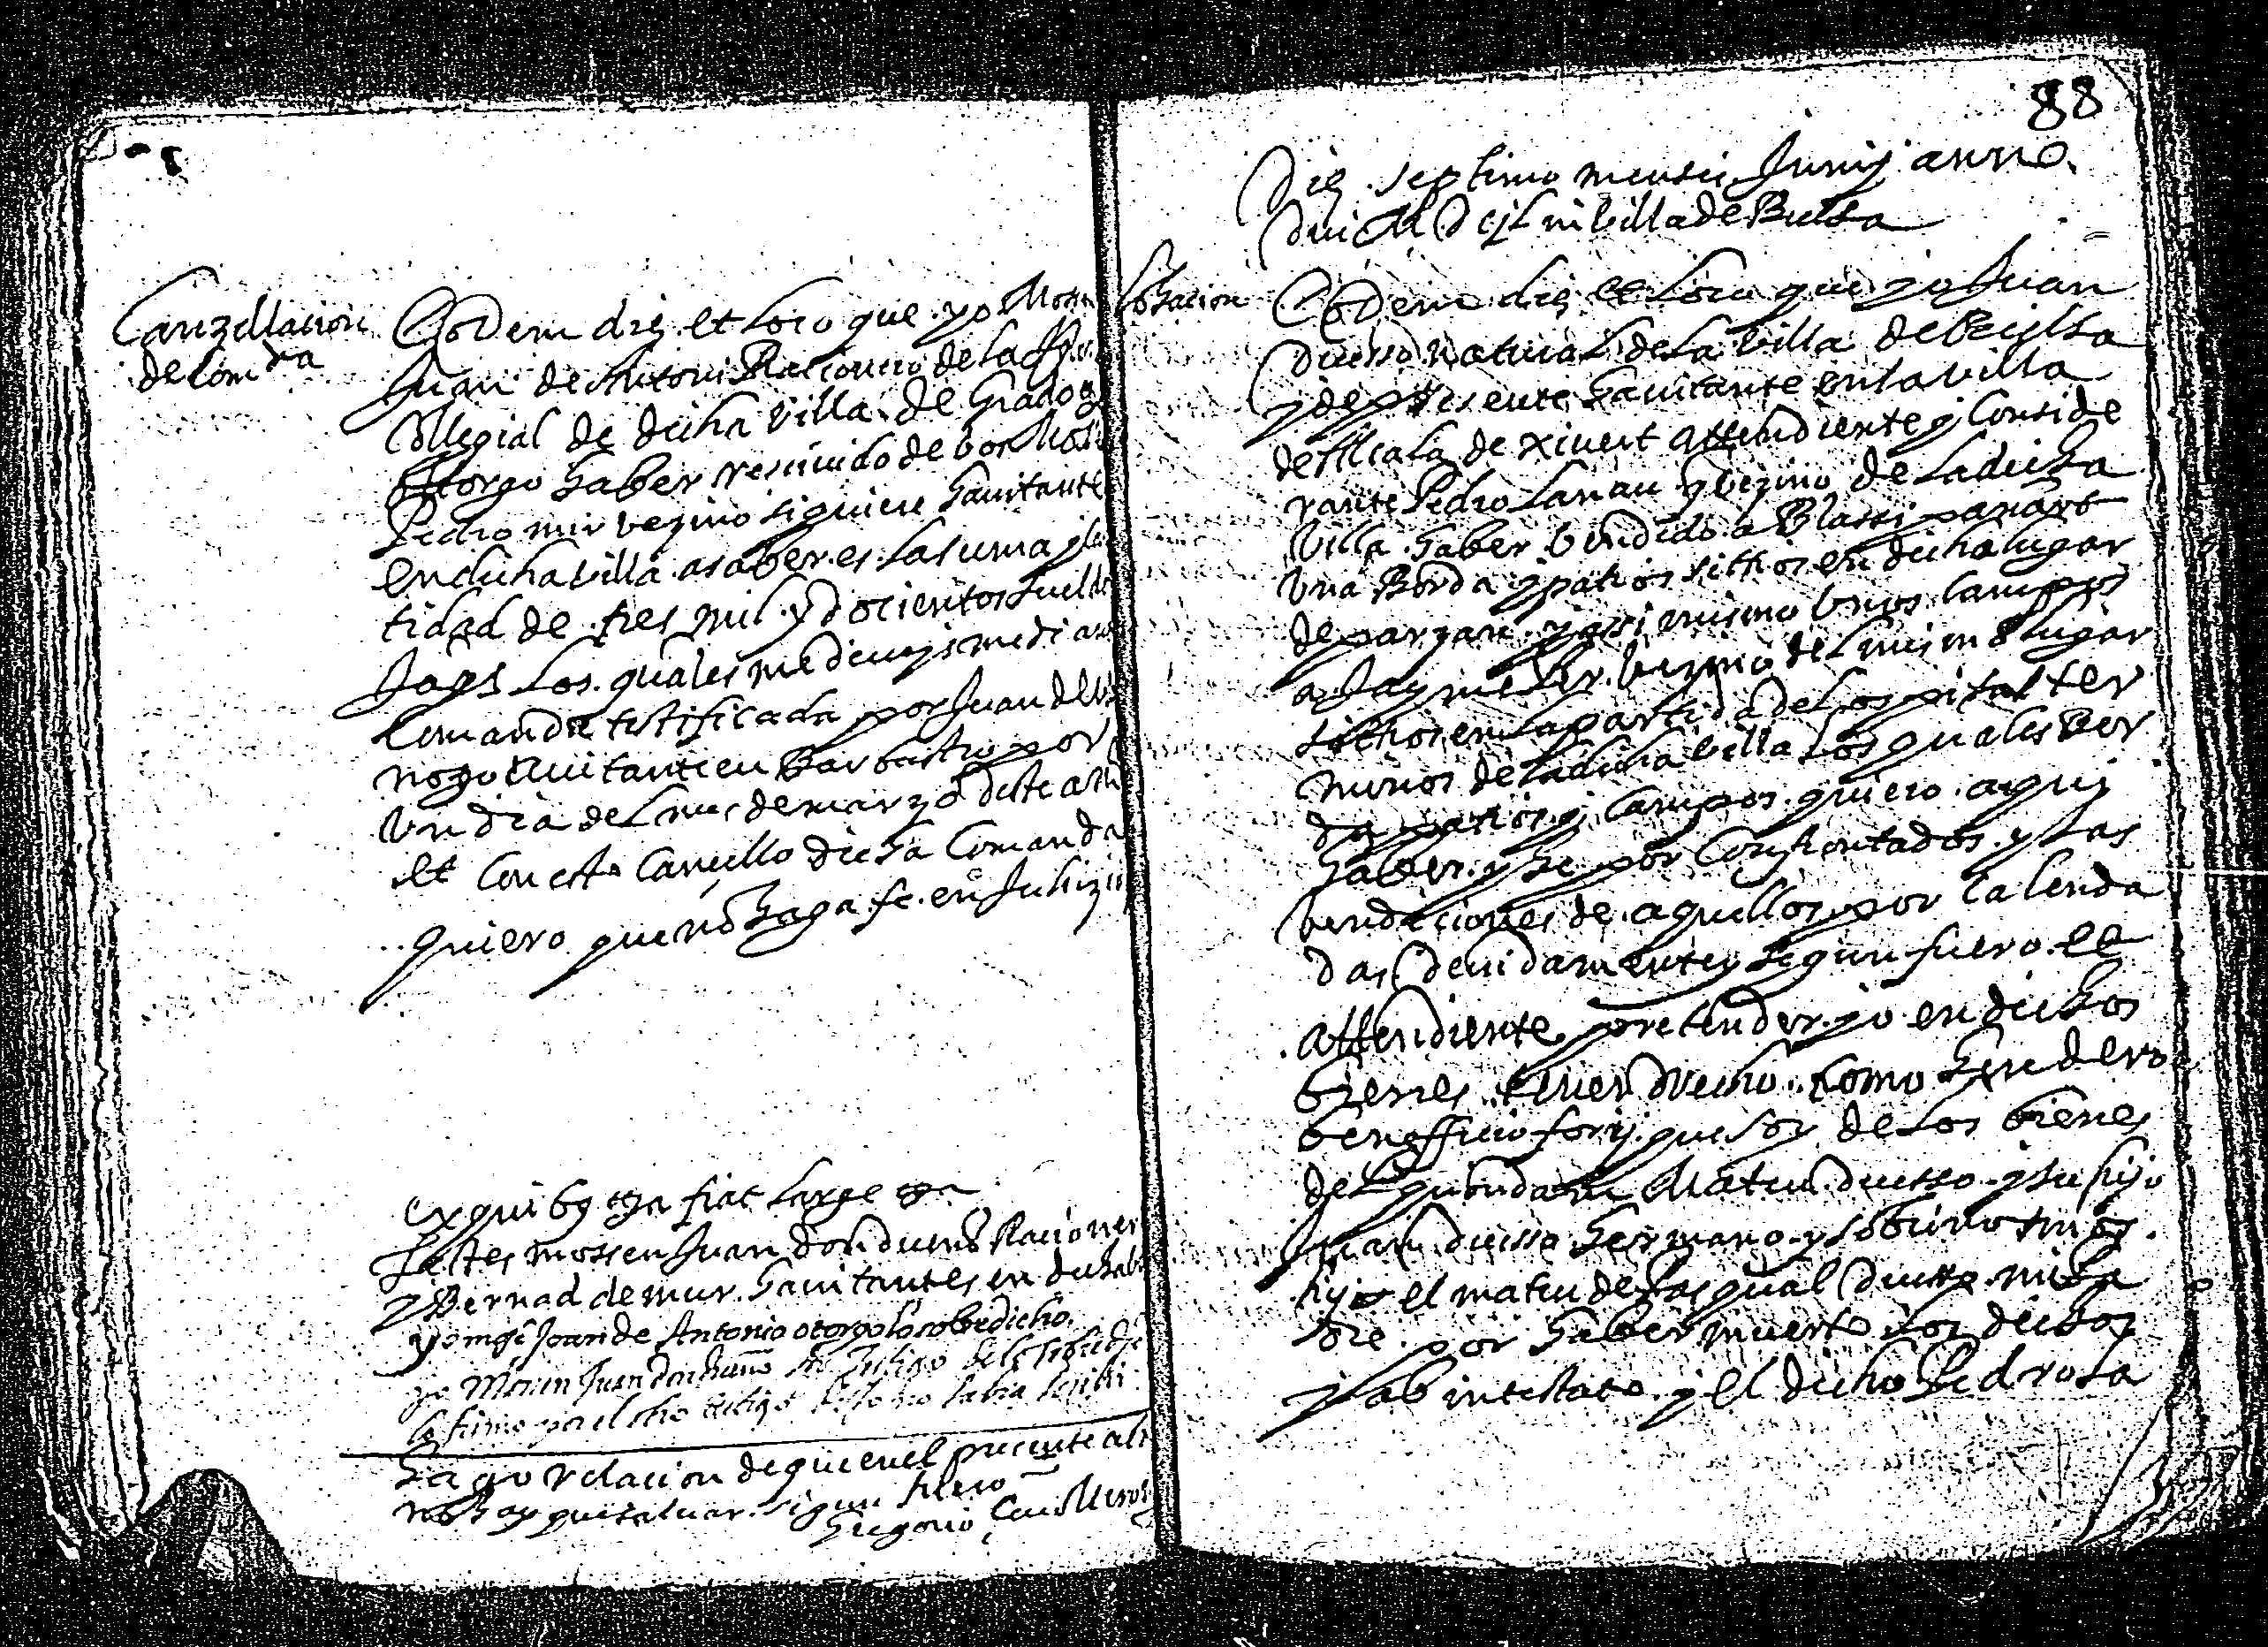 Canzellacion
de Comda
Eodem die et loco que yo Mossen
Juan de Antoni Racionero de la
Collegial de dicha villa de grado
Attorgo haber resciuido de vos Mossen
Pedro mir vezino siquiere hauitante
en dicha villa a saber es la suma y
tidad de tres mil y docientos sueldos
Jaqs los quales me deuays mediante
Comanda testificada por Juan de
nozo hauitante en Barbastro por
vn dia del mes de marzo deste año
et con esto cancello dicha comanda
quiero que no haga fe en Juhizio
ex quibus fiat large
Testes mossen Juan don Racionero
y Bernad de mur hauitantes en dicha
yo mosen Joan de Antonio otorgo lo sobredicho
yo Mosen Juan soi testigo de lo sobredicho
lo firmo por el otro testigo no sabia
hago relacion de que en el presente
no hay que saluar segun fuero
Gregorio
88
Die septimo mensis Junij anno
in villa de Buesa
Lohacion
Eodem die et loco que yo Juan
Duesso natural de la villa de
y de presente hauitante en la villa
de Alcala de xiuert attendiente y conside
rante Pedro Lanau vezino de la dicha
villa haber vendido a Blassi panart
vna Borda y patios sitios en dicho lugar
de panzan y assi mismo vnos campos
a Jayme vezino del mismo lugar
sitios en la partida del ospital ter
minos de la dicha villa los quales Bor
da patios y campos quiero aqui
haber y he por confrontados y las
vendiciones de aquellos por calenda
das deuidamente segun fuero et
attendiente pretender yo en dichos
bienes tener drecho como heredero
benefficio forij que soy de los bienes
del quondam Mateu duesso y su hijo
Juan duesso hermano y sobrino mios
hijo el mateu de Pasqual duesso mi
dre por haber muerto los dichos
y ab intestato y el dicho Pedro la